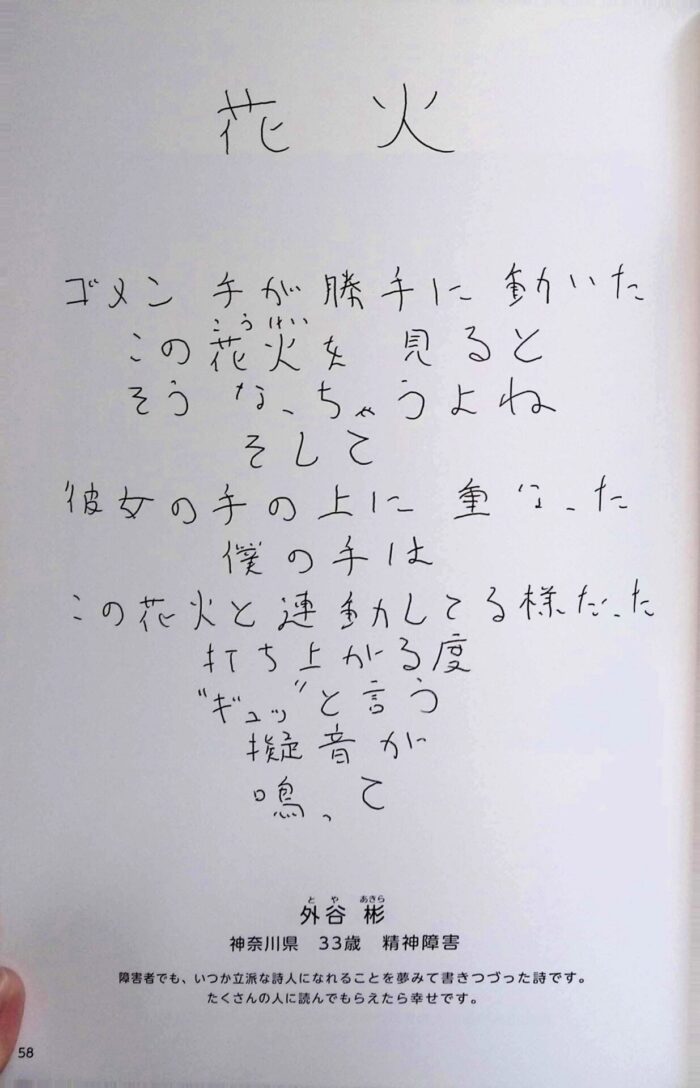 花火
ゴメン 手が勝手に 動いた
こうけい
この花火を 見ると
そう なっちゃうよね
そして
彼女の手の上に 重なった
僕の手は
この花火と連動してる様だった
打ち上がる度
"ギュッ"と言う
擬音が
鳴って
とや あきら
外谷 彬
神奈川県 33歳 精神障害
障害者でも、いつか立派な詩人になれることを夢みて書きつづった詩です。
たくさんの人に読んでもらえたら幸せです。
58